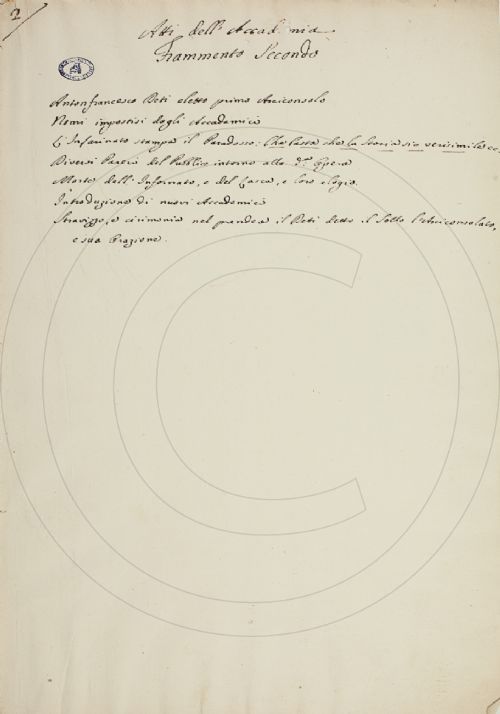 2
Atti dell' Accademia
Frammento Secondo
Antonfrancesco Beti eletto primo Arciconsolo
Nomi impostisi dagli Accademici
L'Infarinato stampa il Paradosso: Che lassa che la Storia sia verisimile ec.
Diversi Pareri del Pubblico intorno alla d.ª Opera
Morte dell' Informato, e del Lasca, e loro elogio.
Introduzione di nuovi Accademici
Stravizzo, e cirimonia nel prendere il Beti detto il Sollo l'Arciconsolato,
e sua Orazione.